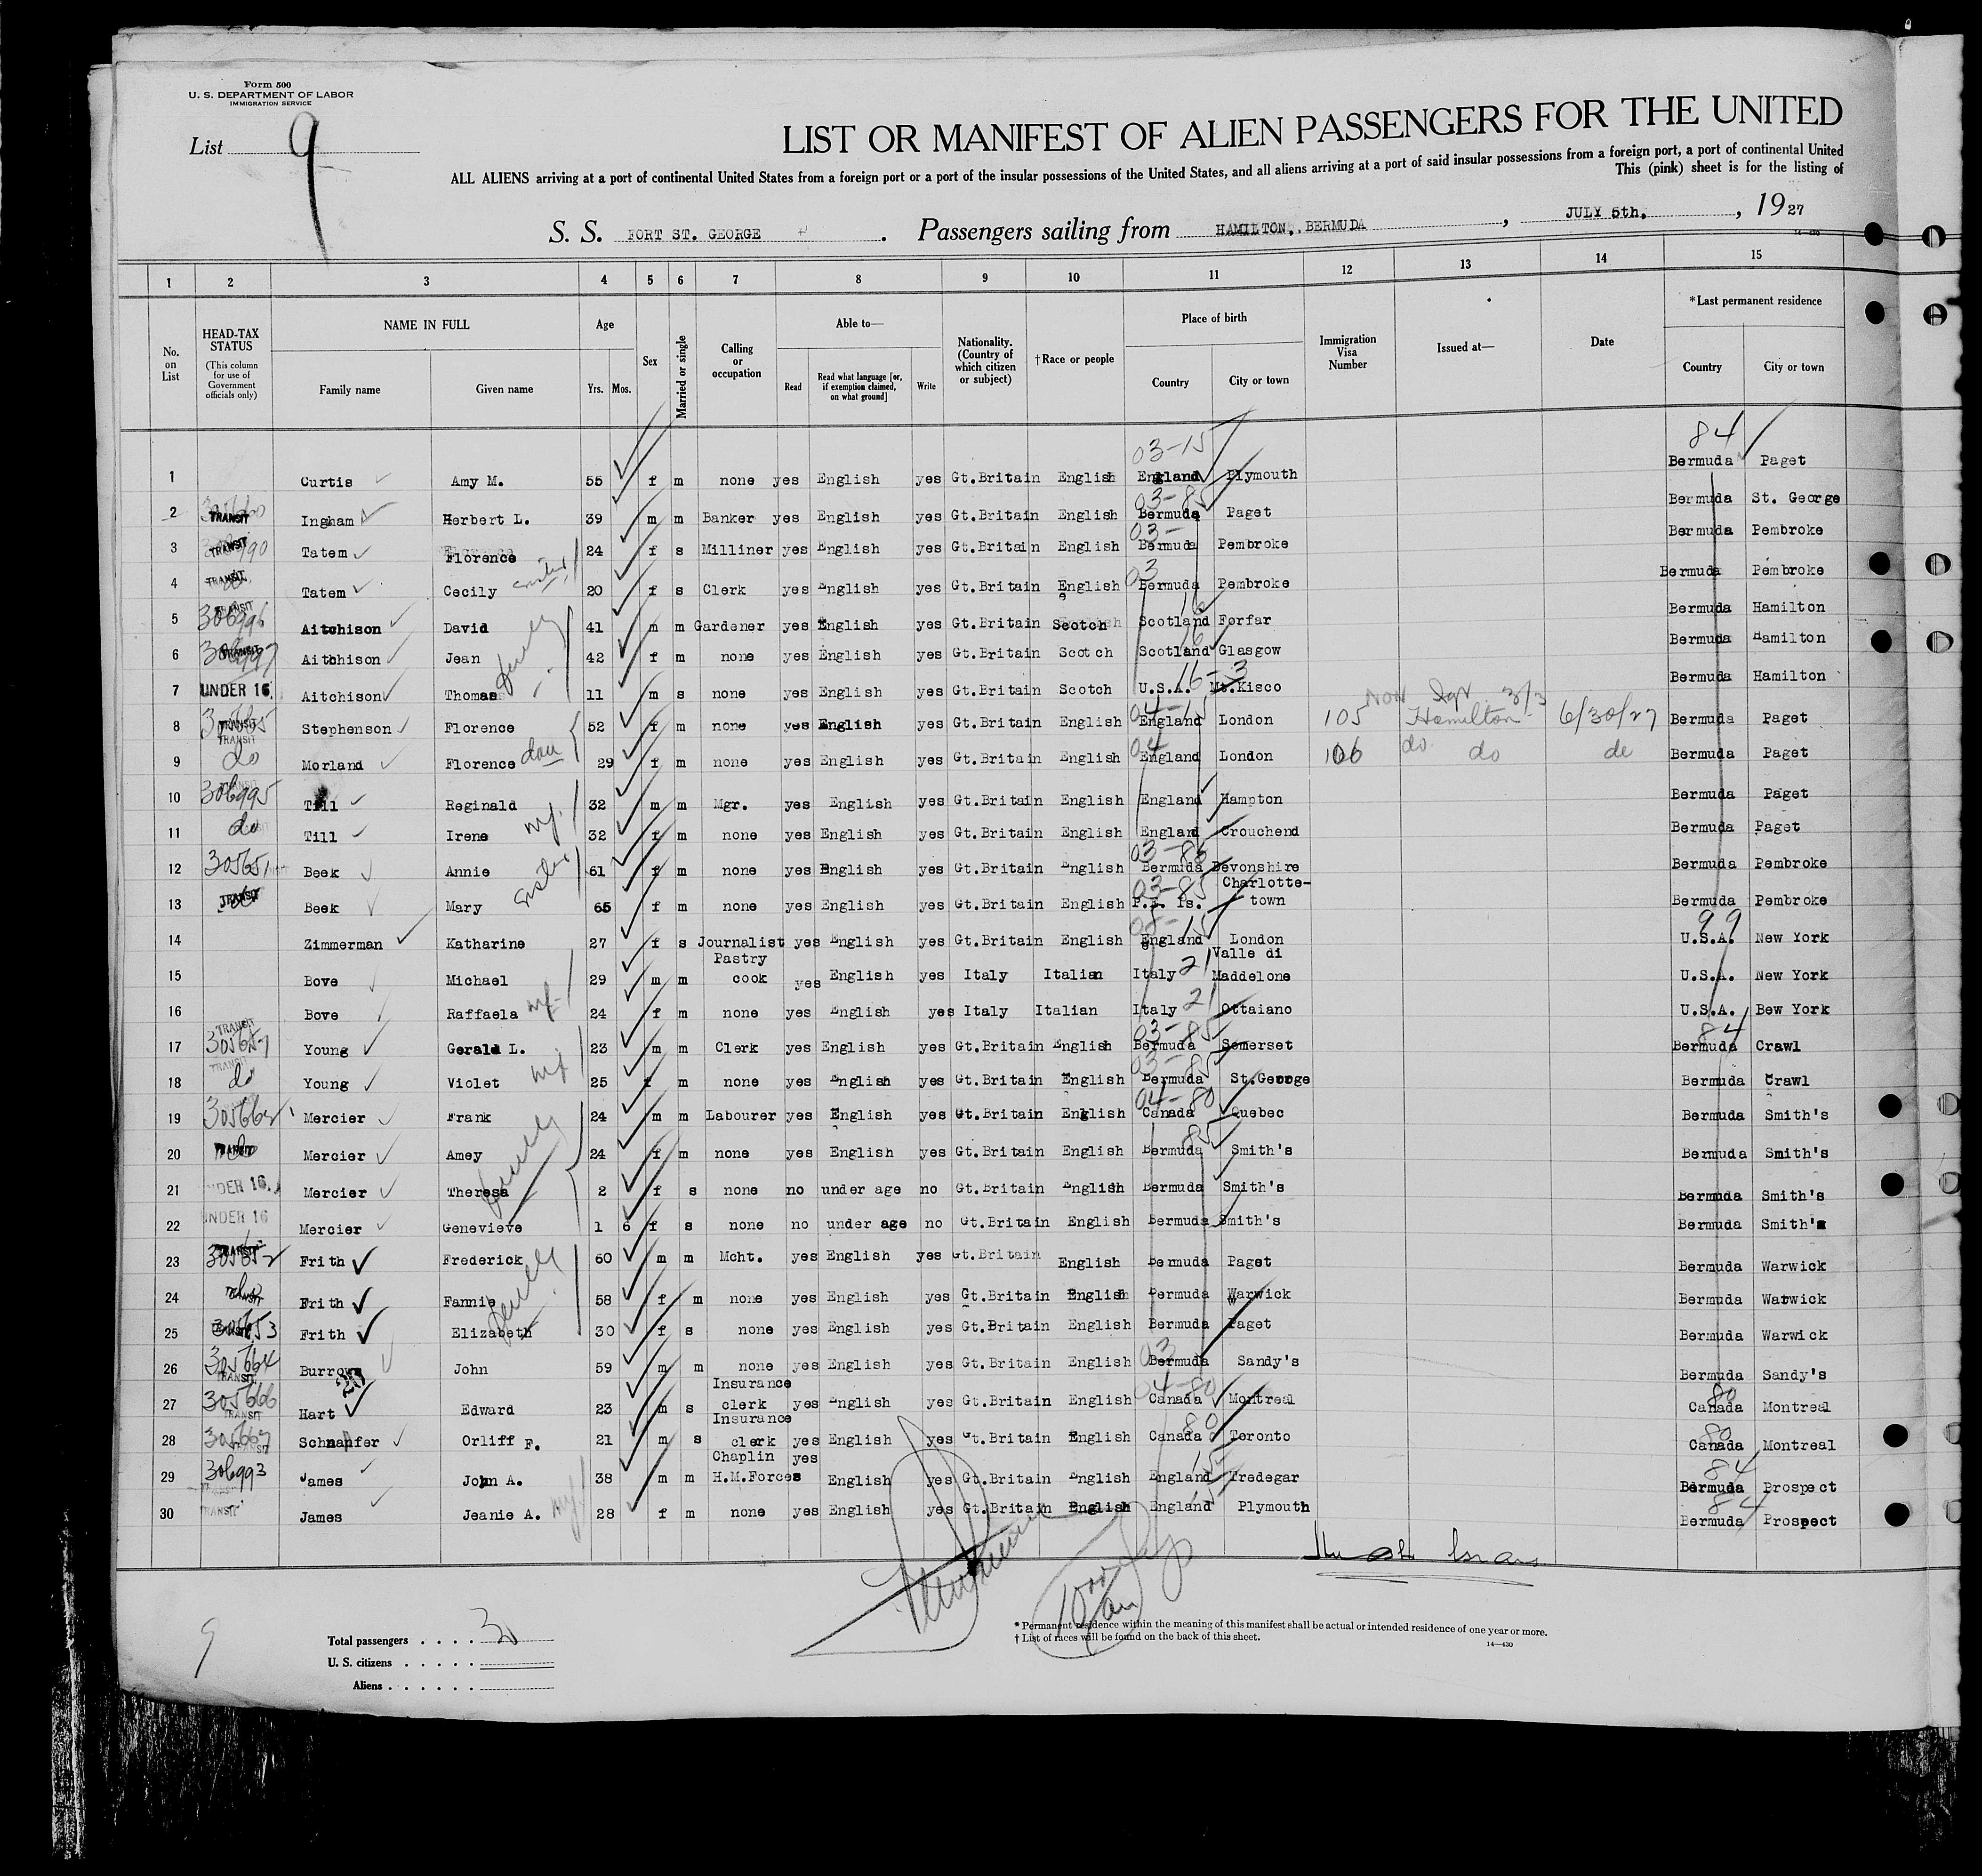 Form 500
U. S. DEPARTMENT OF LABOR
IMMIGRATION SERVICE
List 9
LIST OR MANIFEST OF ALIEN PASSENGERS FOR THE UNITED
ALL ALIENS arriving at a port of continental United States from a foreign port or a port of the insular possessions of the United States, and all aliens arriving at a port of said insular possessions from a foreign port, a port of continental United
This (pink) sheet is for the listing of
S. S. FORT ST. GEORGE . Passengers sailing from HAMILTON, BERMUDA , JULY 5th. , 1927
1 2 3 4 5 6 7 8 9 10 11 12 13 14 15
No. on List
HEAD-TAX STATUS (This column for use of Government officials only)
NAME IN FULL Family name Given name
Age Yrs. Mos.
Sex
Married or single
Calling or occupation
Able to— Read Read what language [or, if exemption claimed, on what ground] Write
Nationality. (Country of which citizen or subject)
†Race or people
Place of birth Country City or town
Immigration Visa Number
Issued at—
Date
*Last permanent residence Country City or town
03-15 84
1 Curtis Amy M. 55 f m none yes English yes Gt.Britain English England Plymouth Bermuda Paget
2 TRANSIT Ingham Herbert L. 39 m m Banker yes English yes Gt.Britain English 03-85 Bermuda Paget Bermuda St. George
3 TRANSIT Tatem Florence 24 f s Milliner yes English yes Gt.Britain English 03- Bermuda Pembroke Bermuda Pembroke
4 TRANSIT Tatem Cecily sister 20 f s Clerk yes English yes Gt.Britain English 03 Bermuda Pembroke Bermuda Pembroke
5 TRANSIT 306996 Aitchison David 41 m m Gardener yes English yes Gt.Britain Scotch Scotland Forfar Bermuda Hamilton
6 TRANSIT 306997 Aitchison Jean family 42 f m none yes English yes Gt.Britain Scotch Scotland Glasgow Bermuda Hamilton
7 UNDER 16. Aitchison Thomas 11 m s none yes English yes Gt.Britain Scotch U.S.A. Mt.Kisco Bermuda Hamilton
8 TRANSIT 305665 Stephenson Florence 52 f m none yes English yes Gt.Britain English 04-15 England London 105 Hamilton 6/30/27 Bermuda Paget
9 TRANSIT do Morland Florence dau 29 f m none yes English yes Gt.Britain English 04 England London 106 do do do Bermuda Paget
10 306995 Till Reginald 32 m m Mgr. yes English yes Gt.Britain English England Hampton Bermuda Paget
11 do Till Irene wf. 32 f m none yes English yes Gt.Britain English England Crouchend Bermuda Paget
12 305651 Beek Annie 61 f m none yes English yes Gt.Britain English 03-85 Bermuda Devonshire Bermuda Pembroke
13 TRANSIT do Beek Mary sister 65 f m none yes English yes Gt.Britain English 03-85 P.E. Is. Charlotte-town Bermuda Pembroke
14 Zimmerman Katharine 27 f s Journalist yes English yes Gt.Britain English England London 99 U.S.A. New York
15 Bove Michael 29 m m Pastry cook yes English yes Italy Italian Italy 21 Valle di Maddelone U.S.A. New York
16 Bove Raffaela wf. 24 f m none yes English yes Italy Italian Italy 21 Ottaiano U.S.A. Bew York
17 TRANSIT 305657 Young Gerald L. 23 m m Clerk yes English yes Gt.Britain English 03-85 Bermuda Somerset 84 Bermuda Crawl
18 TRANSIT do Young Violet wf 25 f m none yes English yes Gt.Britain English 03-85 Bermuda St.George Bermuda Crawl
19 305662 Mercier Frank 24 m m Labourer yes English yes Gt.Britain English 04-80 Canada Quebec Bermuda Smith's
20 TRANSIT do Mercier Amey 24 f m none yes English yes Gt.Britain English 85 Bermuda Smith's Bermuda Smith's
21 UNDER 16. Mercier Theresa family 2 f s none no under age no Gt.Britain English Bermuda Smith's Bermuda Smith's
22 UNDER 16 Mercier Genevieve 1 6 f s none no under age no Gt.Britain English Bermuda Smith's Bermuda Smith's
23 TRANSIT Frith Frederick 60 m m Mcht. yes English yes Gt.Britain English Bermuda Paget Bermuda Warwick
24 TRANSIT do Frith Fannie family 58 f m none yes English yes Gt.Britain English Bermuda Warwick Bermuda Warwick
25 TRANSIT Frith Elizabeth 30 f s none yes English yes Gt.Britain English Bermuda Paget Bermuda Warwick
26 305664 TRANSIT Burrows John 59 m m none yes English yes Gt.Britain English 03 Bermuda Sandy's Bermuda Sandy's
27 305666 TRANSIT Hart Edward 23 m s Insurance clerk yes English yes Gt.Britain English 04-80 Canada Montreal 80 Canada Montreal
28 305667 TRANSIT Schnaufer Orliff F. 21 m s Insurance clerk yes English yes Gt.Britain English 80 Canada Toronto 80 Canada Montreal
29 306993 TRANSIT James John A. 38 m m Chaplin H.M.Forces yes English yes Gt.Britain English England Tredegar 84 Bermuda Prospect
30 TRANSIT James Jeanie A. wf 28 f m none yes English yes Gt.Britain English England Plymouth 84 Bermuda Prospect
9
Total passengers . . . . 30
U. S. citizens . . . . .
Aliens . . . . . .
* Permanent residence within the meaning of this manifest shall be actual or intended residence of one year or more.
† List of races will be found on the back of this sheet.
14—430